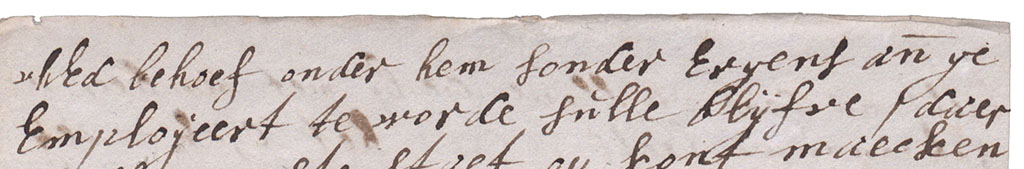 behoef onder hem sonder Ergens an̄ ge
Employeert te worde sulle blijfve daer
staet en kont maecken